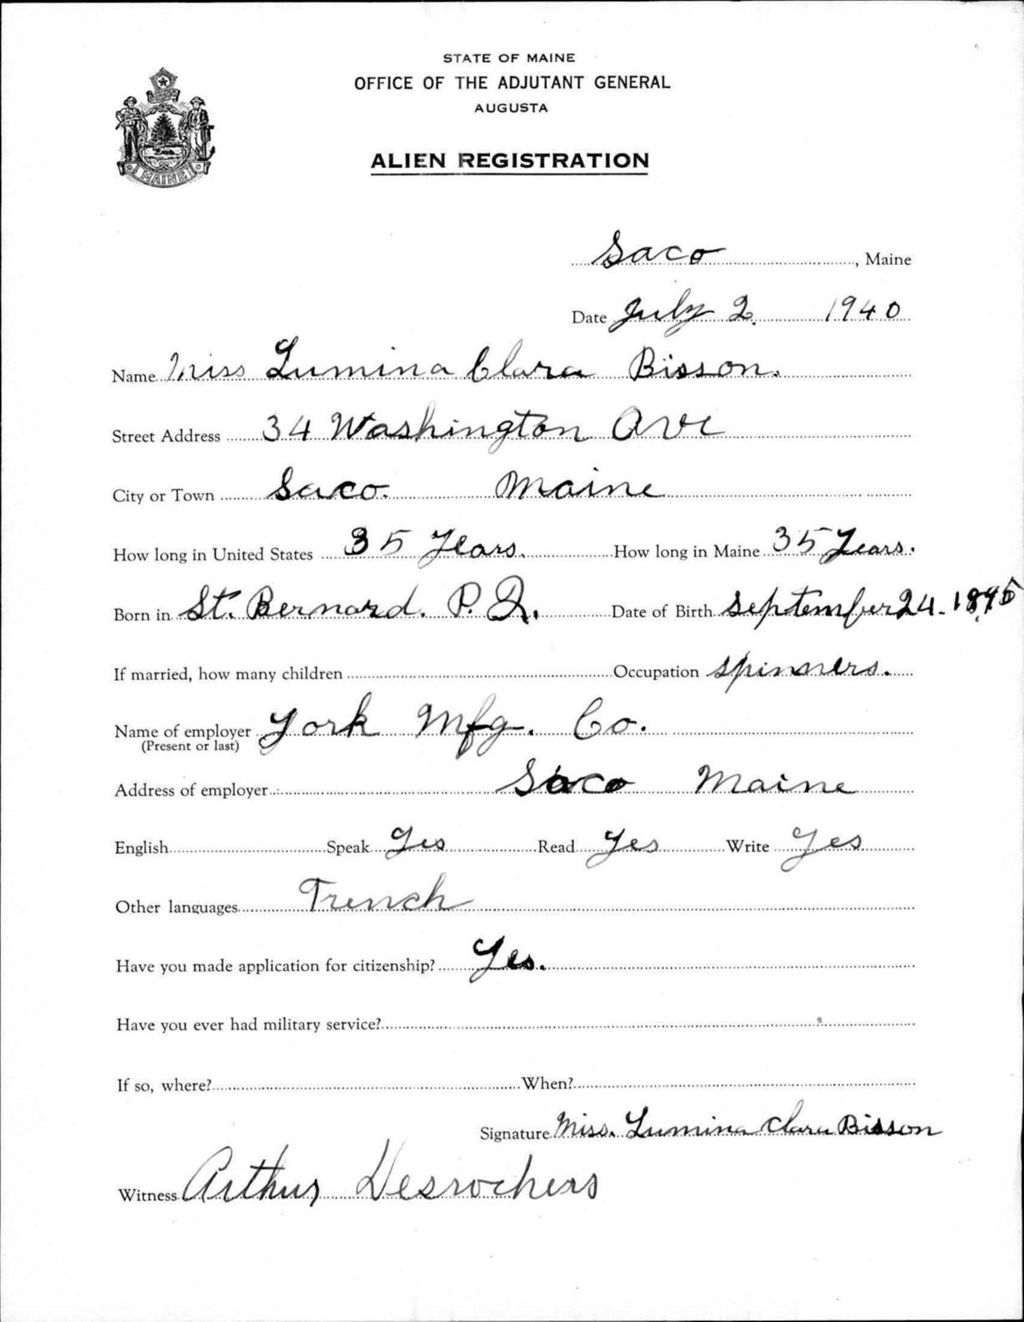 STATE OF MAINE
OFFICE OF THE ADJUTANT GENERAL
AUGUSTA
ALIEN REGISTRATION
MAINE
Saco, Maine
Date July 2. 1940
Name Miss Lumina Clara Bisson.
Street Address 34 Washington Ave
City or Town Saco. Maine
How long in United States 35 Years. How long in Maine 35 Years.
Born in St. Bernard. P. Q. Date of Birth September 24-
If married, how many children Occupation spinners.
Name of employer York Mfg. Co.
(Present or last)
Address of employer Saco Maine
English Speak Yes Read Yes Write Yes
Other languages French
Have you made application for citizenship? Yes.
Have you ever had military service?
If so, where? When?
Signature Miss. Lumina Clara Bisson
Witness Arthur Desrochers